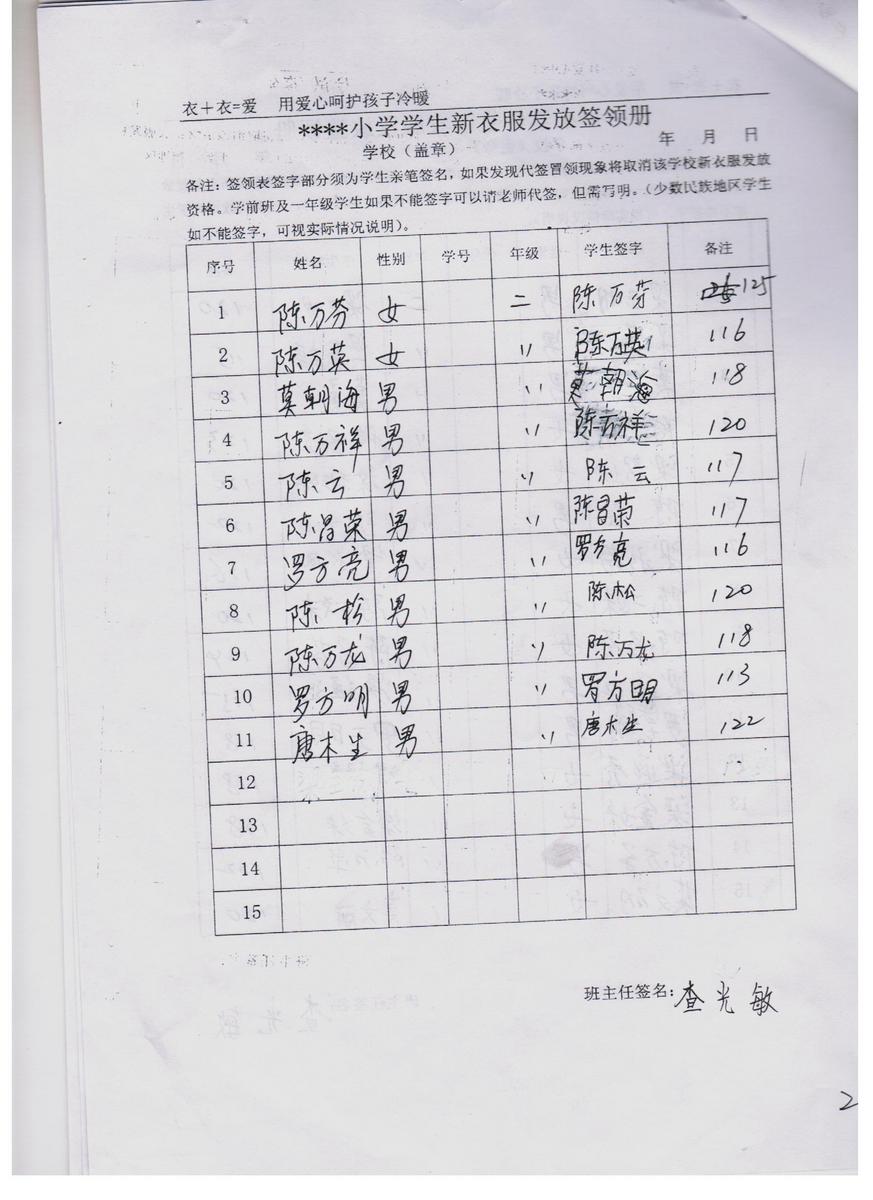 衣+衣=爱 用爱心呵护孩子冷暖
****小学学生新衣服发放签领册
学校（盖章） 年 月 日
备注：签领表签字部分须为学生亲笔签名，如果发现代签冒领现象将取消该学校新衣服发放
资格。学前班及一年级学生如果不能签字可以请老师代签，但需写明。（少数民族地区学生
如不能签字，可视实际情况说明）。
序号 姓名 性别 学号 年级 学生签字 备注
1 陈万芬 女 二 陈万芬 125
2 陈万英 女 〃 陈万英 116
3 莫朝海 男 〃 莫朝海 118
4 陈万祥 男 〃 陈万祥 120
5 陈云 男 〃 陈云 117
6 陈昌荣 男 〃 陈昌荣 117
7 罗方亮 男 〃 罗方亮 116
8 陈松 男 〃 陈松 120
9 陈万龙 男 〃 陈万龙 118
10 罗方明 男 〃 罗方明 113
11 唐木生 男 〃 唐木生 122
12
13
14
15
班主任签名：查光敏
2